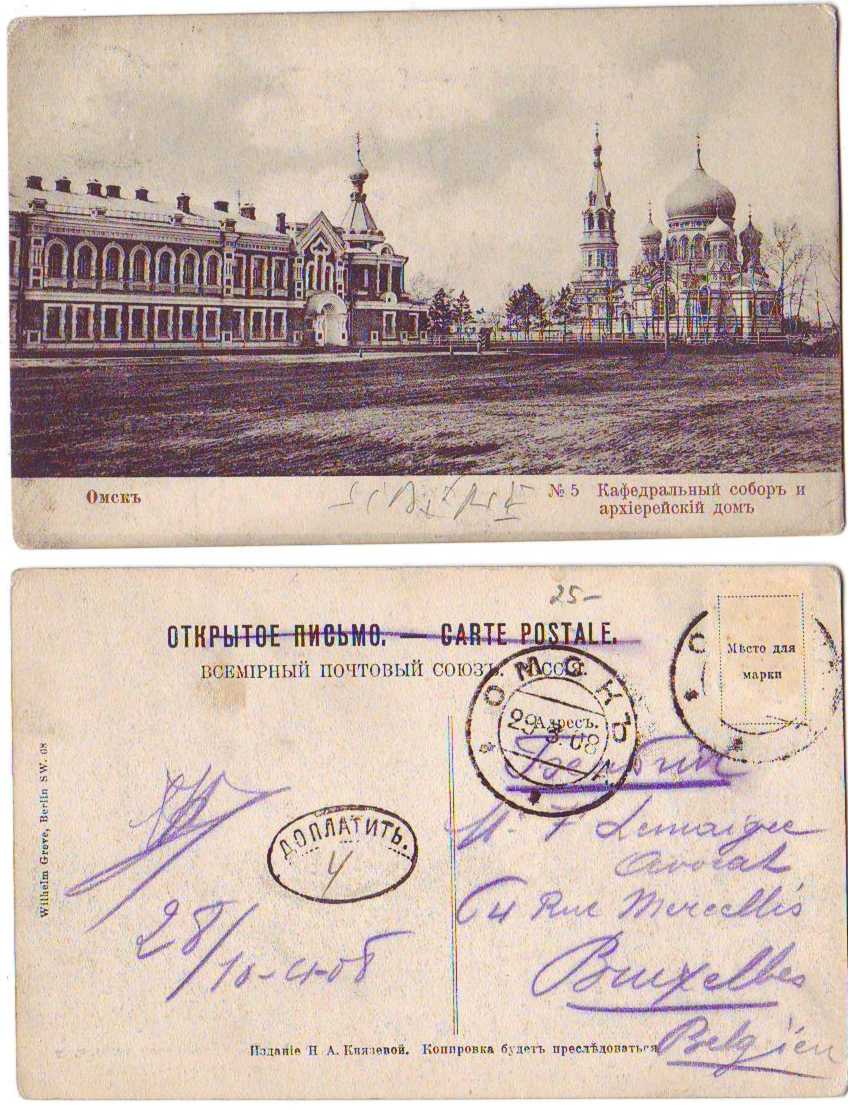 Омскъ
№ 5 Кафедральный соборъ и
архіерейскій домъ
25-
ОТКРЫТОЕ ПИСЬМО. — CARTE POSTALE.
ВСЕМІРНЫЙ ПОЧТОВЫЙ СОЮЗЪ. РОССІЯ.
Мѣсто для
марки
ОМСКЪ
29 3 08
Адресъ.
Wilhelm Greve, Berlin SW. 08
ДОПЛАТИТЬ.
Avocat
64 Rue Mercelis
Bruxelles
28/10-4-08
Изданіе Н. А. Князевой. Копировка будетъ преслѣдоваться